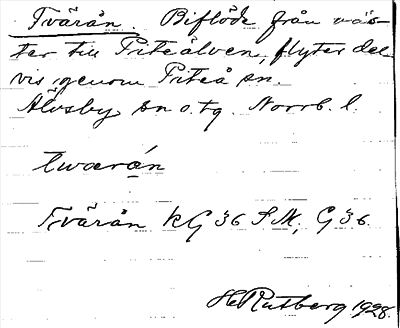 Tvärån. Biflöde från väs-
ter till Piteälven, flyter del-
vis genom Piteå sn.
Älvsby sn o. tg. Norrb. l.
twærån
Tvärån kG 36 S.M., G 36.
H Rutberg 1928.